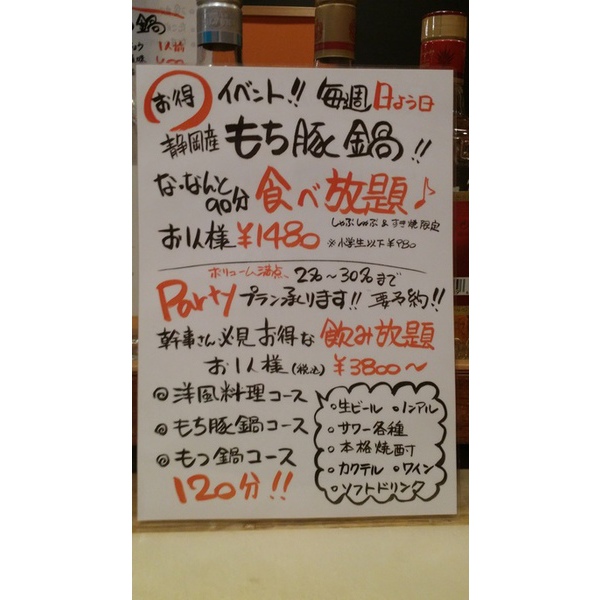 鍋
1人前
お得 イベント!! 毎週日よう日
静岡産 もち豚鍋!!
な・なんと 90分 食べ放題♪
しゃぶしゃぶ&すき焼限定
お1人様 ¥1480 ※小学生以下¥980
ボリューム満点、2名〜30名まで
Partyプラン承ります!! 要予約!!
幹事さん必見 お得な 飲み放題
お1人様(税込) ¥3800〜
◎洋風料理コース
◎もち豚鍋コース
◎もつ鍋コース
120分!!
○生ビール ○ノンアル
○サワー各種
○本格焼酎
○カクテル ○ワイン
○ソフトドリンク